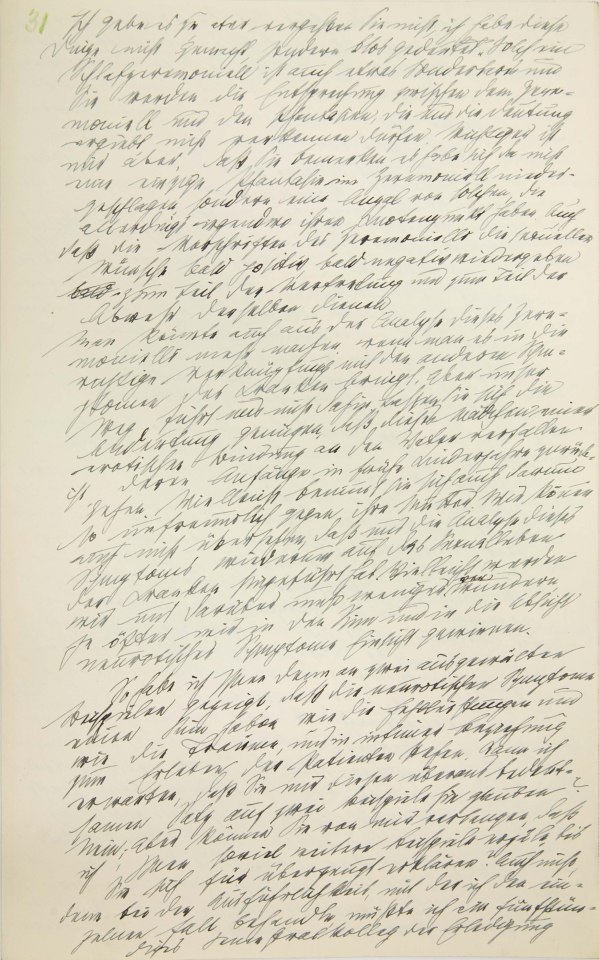 31
Ich gebe es zu aber vergessen Sie nicht, ich habe diese
Dinge nicht gemacht sondern blos gedeutet. Solch ein
Schlafzeremoniell ist auch etwas Sonderbares und
Sie werden die Entsprechung zwischen dem Zere-
moniell und den Phantasien, die uns die Deutung
ergiebt nicht verkennen dürfen. Wichtiger ist
mir aber, daß Sie bemerken es habe sich da nicht
eine einzige Phantasie im Zeremoniell nieder-
geschlagen sondern eine Anzal von solchen, die
allerdings irgendwo ihren Knotenpunkt haben. Auch
daß die Vorschriften des Zeremoniells die sexuellen
Wünsche bald positiv bald negativ wiedergeben
zum Teil der Vertretung und zum Teil der
Abwehr derselben dienen.
Man könnte auch aus der Analyse dieses Zere-
moniells mehr machen, wenn man es in die
richtige Verknüpfung mit den anderen Sym-
ptomen der Kranken bringt. Aber unser
Weg führt uns nicht dahin. Lassen Sie sich die
Andeutung genügen, daß dieses Mädchen einer
erotischen Bindung an den Vater verfallen
ist deren Anfänge in frühe Kinderjahre zurück-
gehen. Vielleicht benimmt sie sich auch darum
so unfreundlich gegen ihre Mutter. Wir können
auch nicht übersehen, daß uns die Analyse dieses
Symptoms wiederum auf das Sexualleben
der Kranken hingeführt hat. Vielleicht werden
wir uns darüber umso weniger verwundern
je öfter wir in den Sinn und in die Absicht
neurotischer Symptome Einsicht gewinnen.
So habe ich Ihnen denn an zwei ausgewälten
Beispielen gezeigt, daß die neurotischen Symptome
einen Sinn haben wie die Fehlleistungen und
wie die Träume, und in intimer Beziehung
zum Erleben der Patienten stehen. Kann ich
erwarten, daß Sie mir diesen überaus bedeut-
samen Satz auf zwei Beispiele hin glauben?
Nein; Aber können Sie von mir verlangen, daß
ich Ihnen soviel weitere Beispiele erzäle bis
Sie sich für überzeugt erklären? Auch nicht,
denn bei der Ausführlichkeit mit der ich den ein-
zelnen Fall behandle müßte ich ein fünfstün-
diges Semestralkolleg der Erledigung